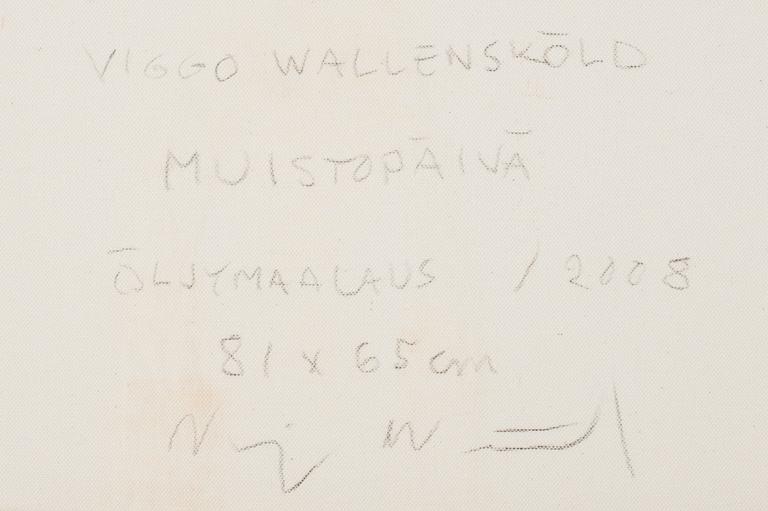 VIGGO WALLENSKÖLD
MUISTOPÄIVÄ
ÖLJYMAALAUS / 2008
81 x 65 cm